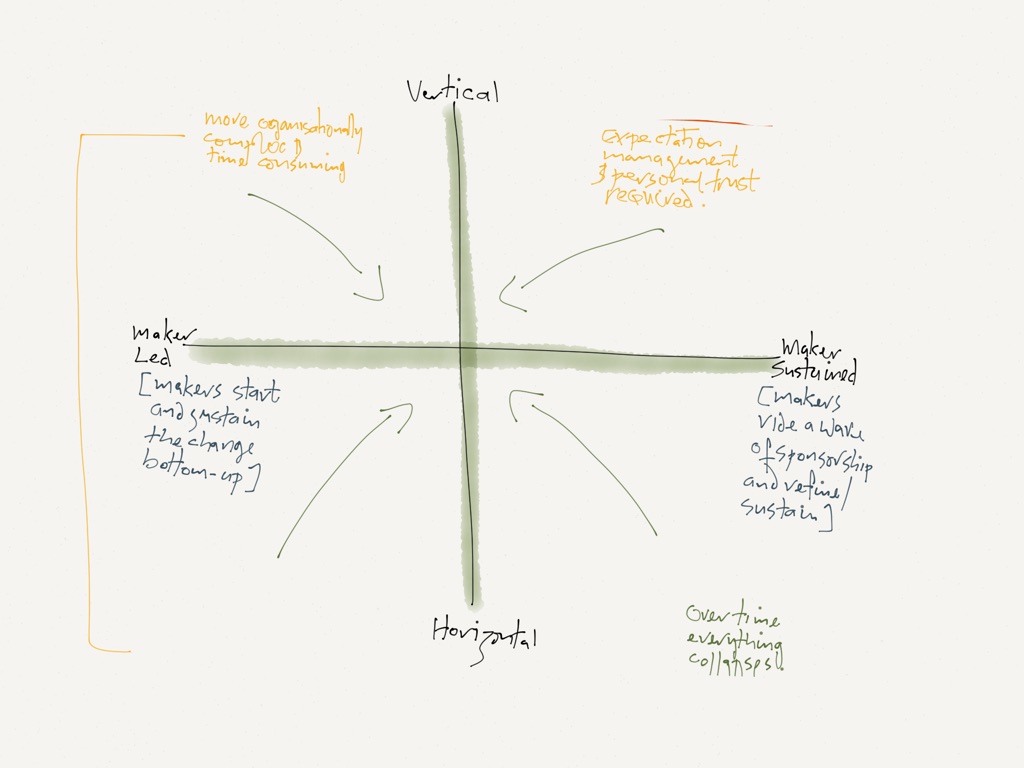 Vertical
more organisationally
complex &
time consuming
expectation
management
& personal trust
required.
Maker
Led
[makers start
and sustain
the change
bottom-up]
Maker
Sustained
[makers
ride a wave
of sponsorship
and refine/
sustain]
Horizontal
over time
everything
collapses!